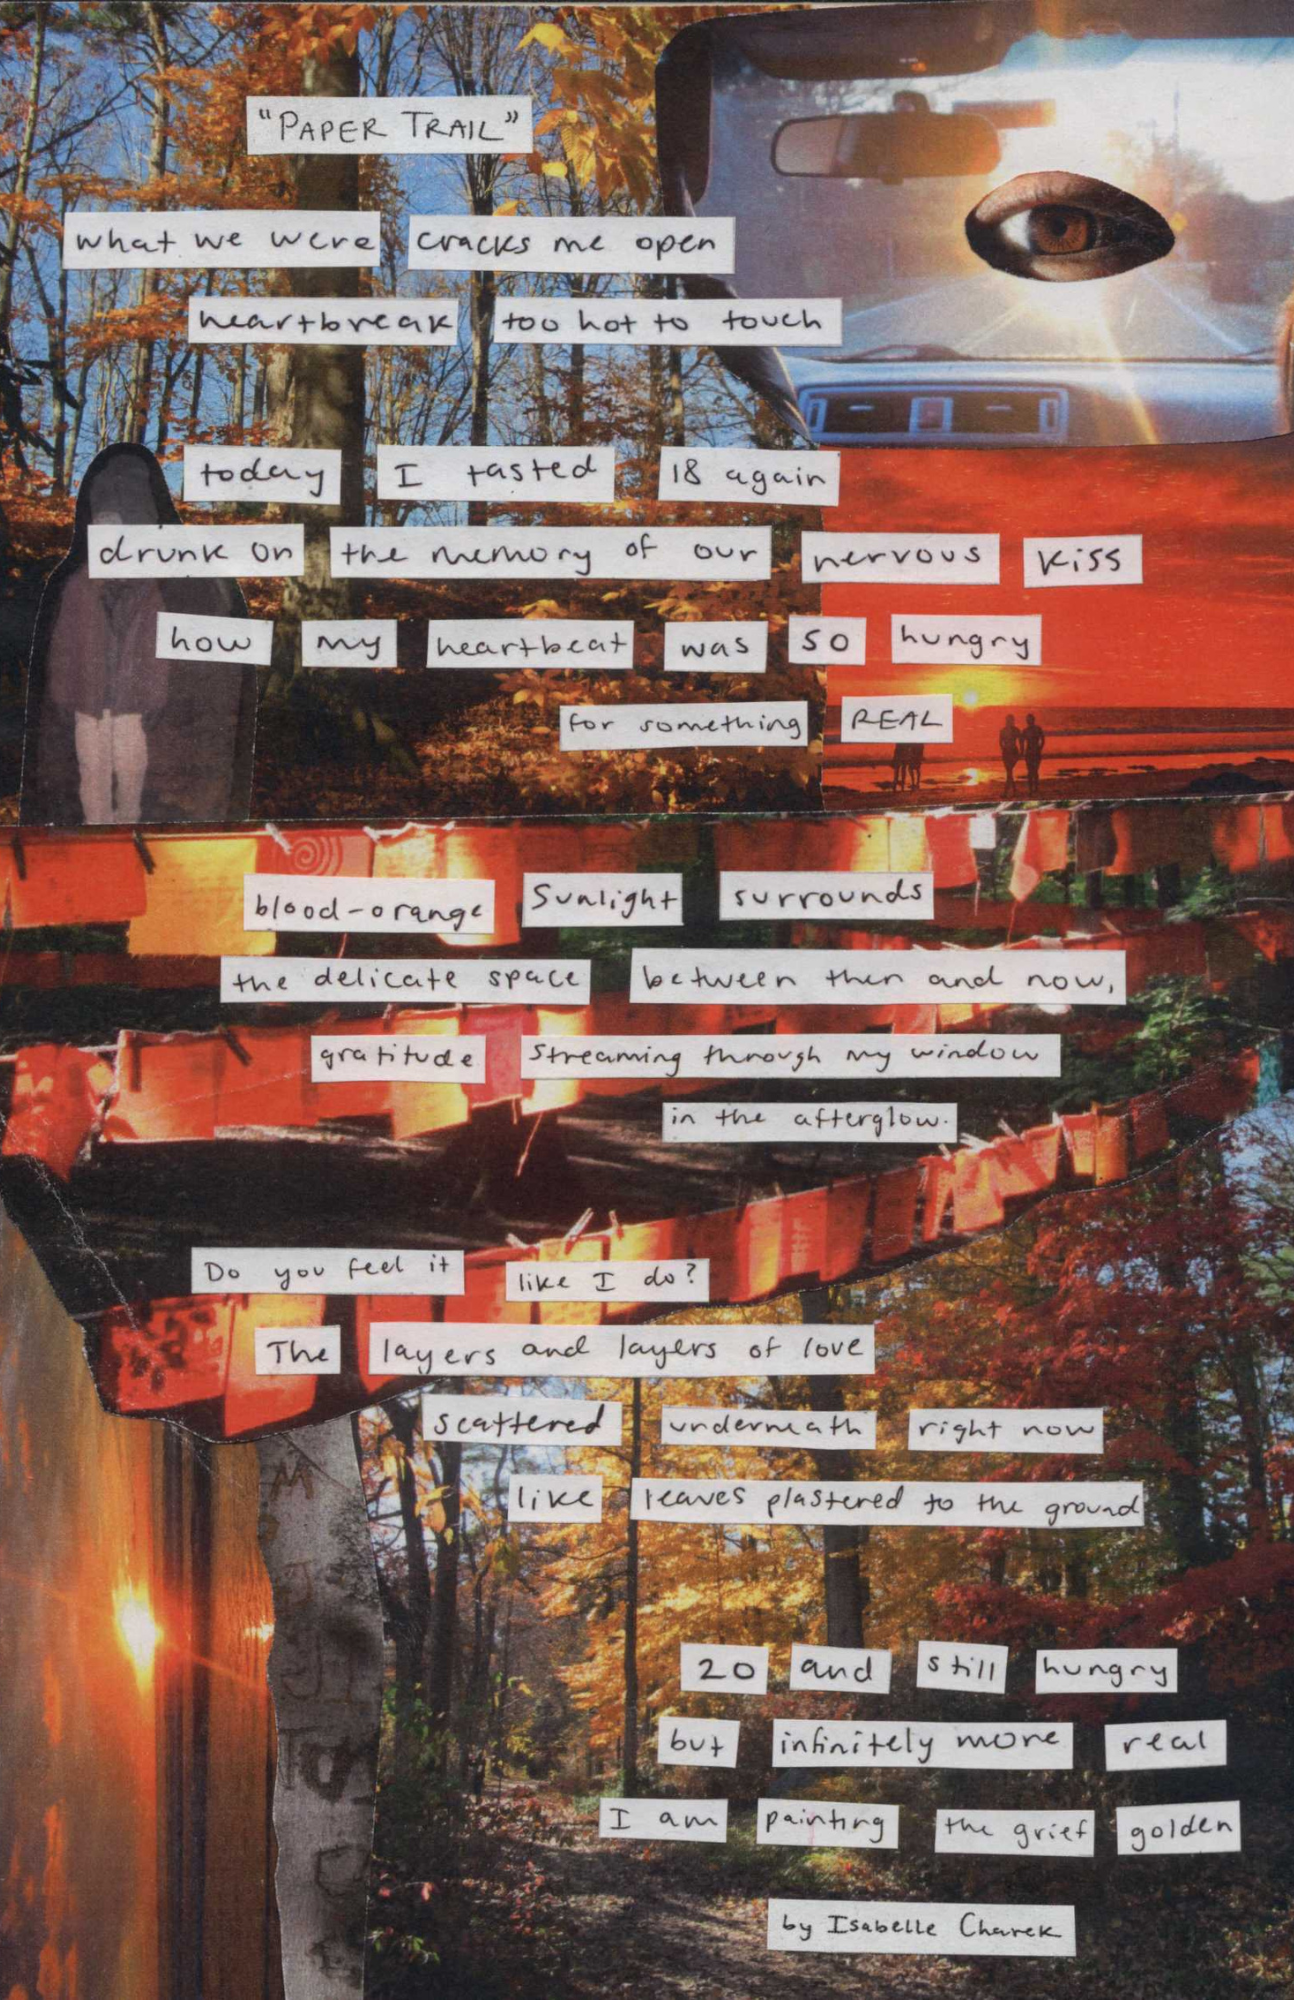 "PAPER TRAIL"
what we were cracks me open
heartbreak too hot to touch
today I tasted 18 again
drunk on the memory of our nervous kiss
how my heartbeat was so hungry
for something REAL
blood-orange sunlight surrounds
the delicate space between then and now,
gratitude streaming through my window
in the afterglow.
Do you feel it like I do?
The layers and layers of love
scattered underneath right now
like leaves plastered to the ground
20 and still hungry
but infinitely more real
I am painting the grief golden
by Isabelle Charek